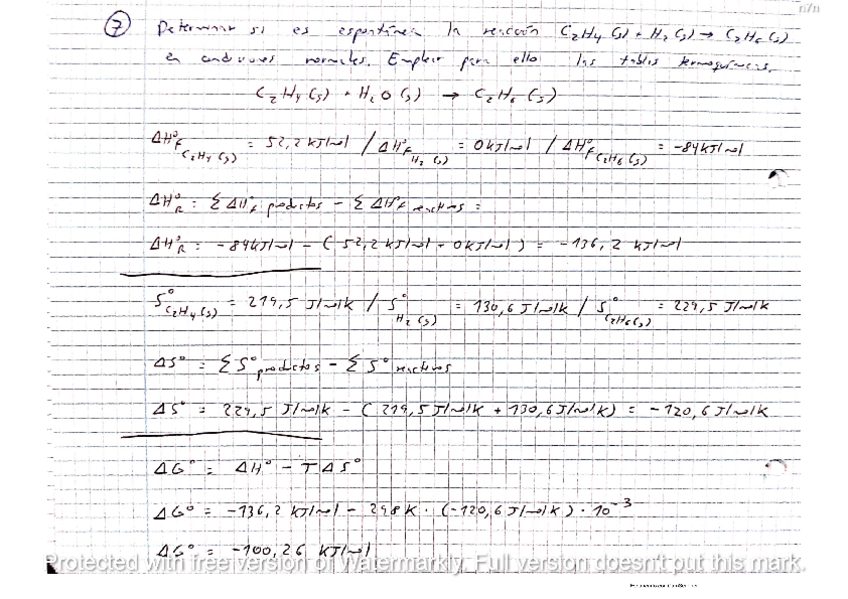 7 Determinar si es espontánea la reacción C2H4 (g) + H2 (g) → C2H6 (g)
en condiciones normales. Emplear para ello las tablas termoquímicas.
C2H4 (g) + H2O (g) → C2H6 (g)
ΔH°f C2H4 (g) = 52,2 kJ/mol / ΔH°f H2 (g) = 0 kJ/mol / ΔH°f C2H6 (g) = -84 kJ/mol
ΔH°R = Σ ΔH°f productos - Σ ΔH°f reactivos =
ΔH°R = -84 kJ/mol - ( 52,2 kJ/mol + 0 kJ/mol ) = -136,2 kJ/mol
S° C2H4 (g) = 219,5 J/molK / S° H2 (g) = 130,6 J/molK / S° C2H6 (g) = 229,5 J/molK
ΔS° = Σ S° productos - Σ S° reactivos
ΔS° = 229,5 J/molK - ( 219,5 J/molK + 130,6 J/molK ) = -120,6 J/molK
ΔG° = ΔH° - TΔS°
ΔG° = -136,2 kJ/mol - 298K · (-120,6 J/molK ) · 10⁻³
ΔG° = -100,26 kJ/mol
Protected with free version of Watermarkly. Full version doesn't put this mark.